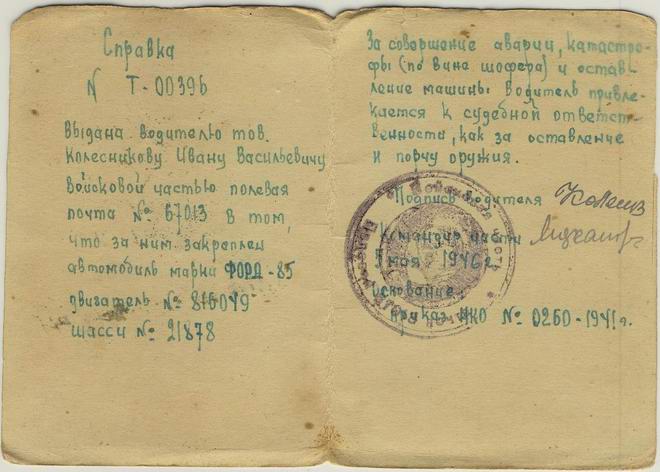 Справка
N Т-00396
выдана водителю тов.
Колесникову Ивану Васильевичу
войсковой частью полевая
почта № 67013 в том,
что за ним закреплен
автомобиль марки ФОРД-85
двигатель №
шасси № 21878
За совершение аварии, катастро-
фы (по вине шофера) и остав-
ление машины водитель привле-
кается к судебной ответст-
венности, как за оставление
и порчу оружия.
Подпись водителя
Командир части
5 мая 1946 г.
Основание:
приказ НКО № 0260-1941 г.